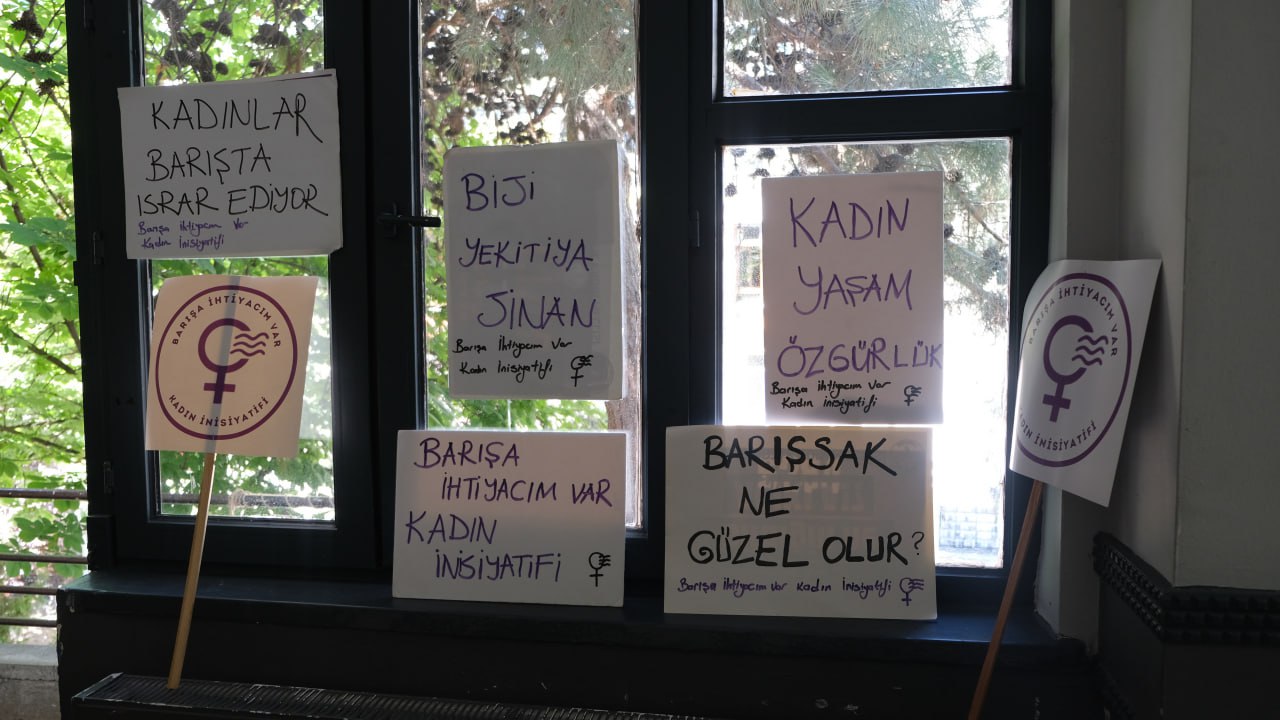 KADINLAR
BARIŞTA
ISRAR EDİYOR
Barışa ihtiyacım var
Kadın İnisiyatifi
BARIŞA İHTİYACIM VAR
KADIN İNİSİYATİFİ
BİJİ
YEKİTİYA
JİNAN
Barışa İhtiyacım Var
Kadın İnisiyatifi
KADIN
YAŞAM
ÖZGÜRLÜK
Barışa ihtiyacım var
Kadın inisiyatifi
BARIŞA İHTİYACIM VAR
KADIN İNİSİYATİFİ
BARIŞA
İHTİYACIM VAR
KADIN
İNİSİYATİFİ
BARIŞSAK
NE
GÜZEL OLUR?
Barışa ihtiyacım var Kadın İnisiyatifi